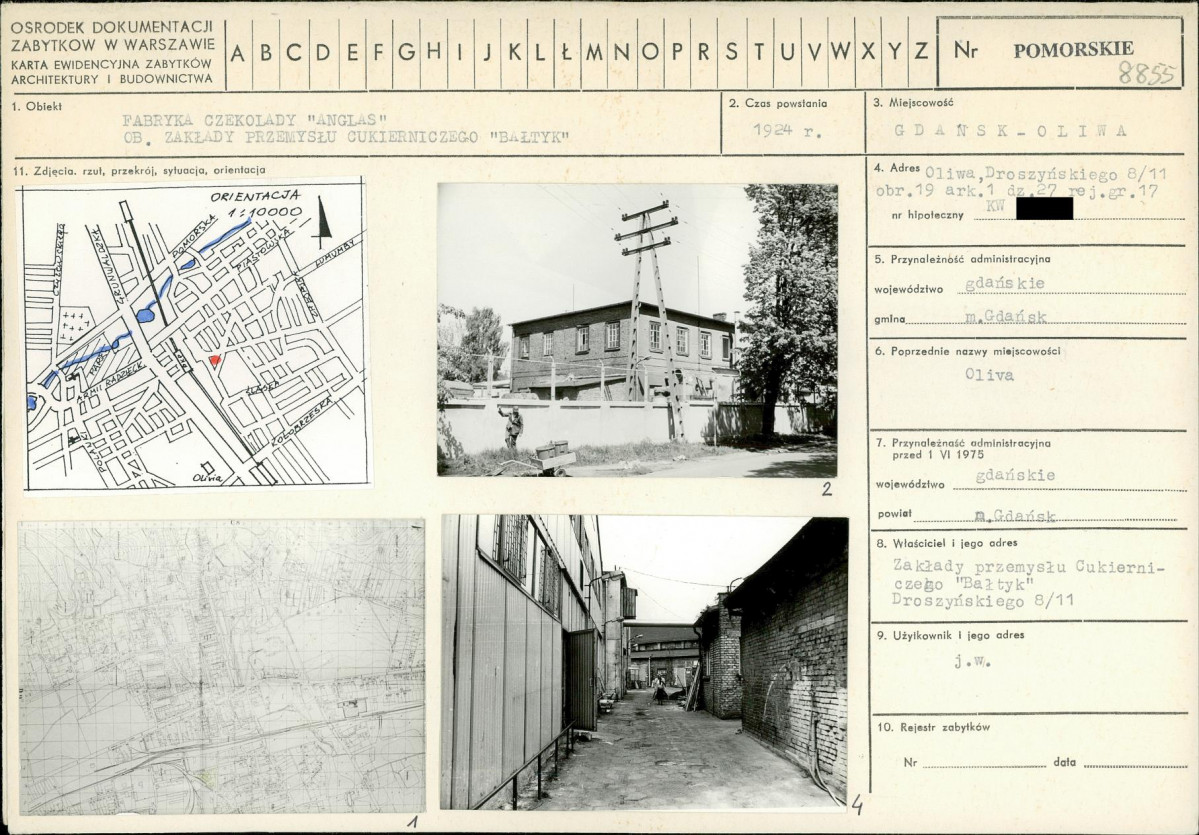 OSRODEK DOKUMENTACJI
ZABYTKOW W WARSZAWIE
KARTA EWIDENCYJNA ZABYTKÓW
ARCHITEKTURY I BUDOWNICTWA
A B C D E F G H I J K L Ł M N O P R S T U V W X Y Z
Nr POMORSKIE
8855
1. Obiekt
FABRYKA CZEKOLADY "ANGLAS"
OB. ZAKŁADY PRZEMYSŁU CUKIERNICZEGO "BAŁTYK"
2. Czas powstania
1924 r.
3. Miejscowość
GDAŃSK-OLIWA
11. Zdjęcia. rzut, przekrój, sytuacja, orientacja
ORIENTACJA
1:10000
POMORSKA
PIASTOWSKA
LUMUMBY
GRUNWALDZKA
ARMII RADZIECK.
ŚLĄSKA
KOŁOBRZESKA
Olivia
2
1
4
4. Adres Oliwa,Droszyńskiego 8/11
obr.19 ark.1 dz.27 rej.gr.17
nr hipoteczny KW
5. Przynależność administracyjna
województwo gdańskie
gmina m.Gdańsk
6. Poprzednie nazwy miejscowości
Oliva
7. Przynależność administracyjna
przed 1 VI 1975
województwo gdańskie
powiat m.Gdańsk
8. Właściciel i jego adres
Zakłady przemysłu Cukierni-
czego "Bałtyk"
Droszyńskiego 8/11
9. Użytkownik i jego adres
j.w.
10. Rejestr zabytków
Nr data